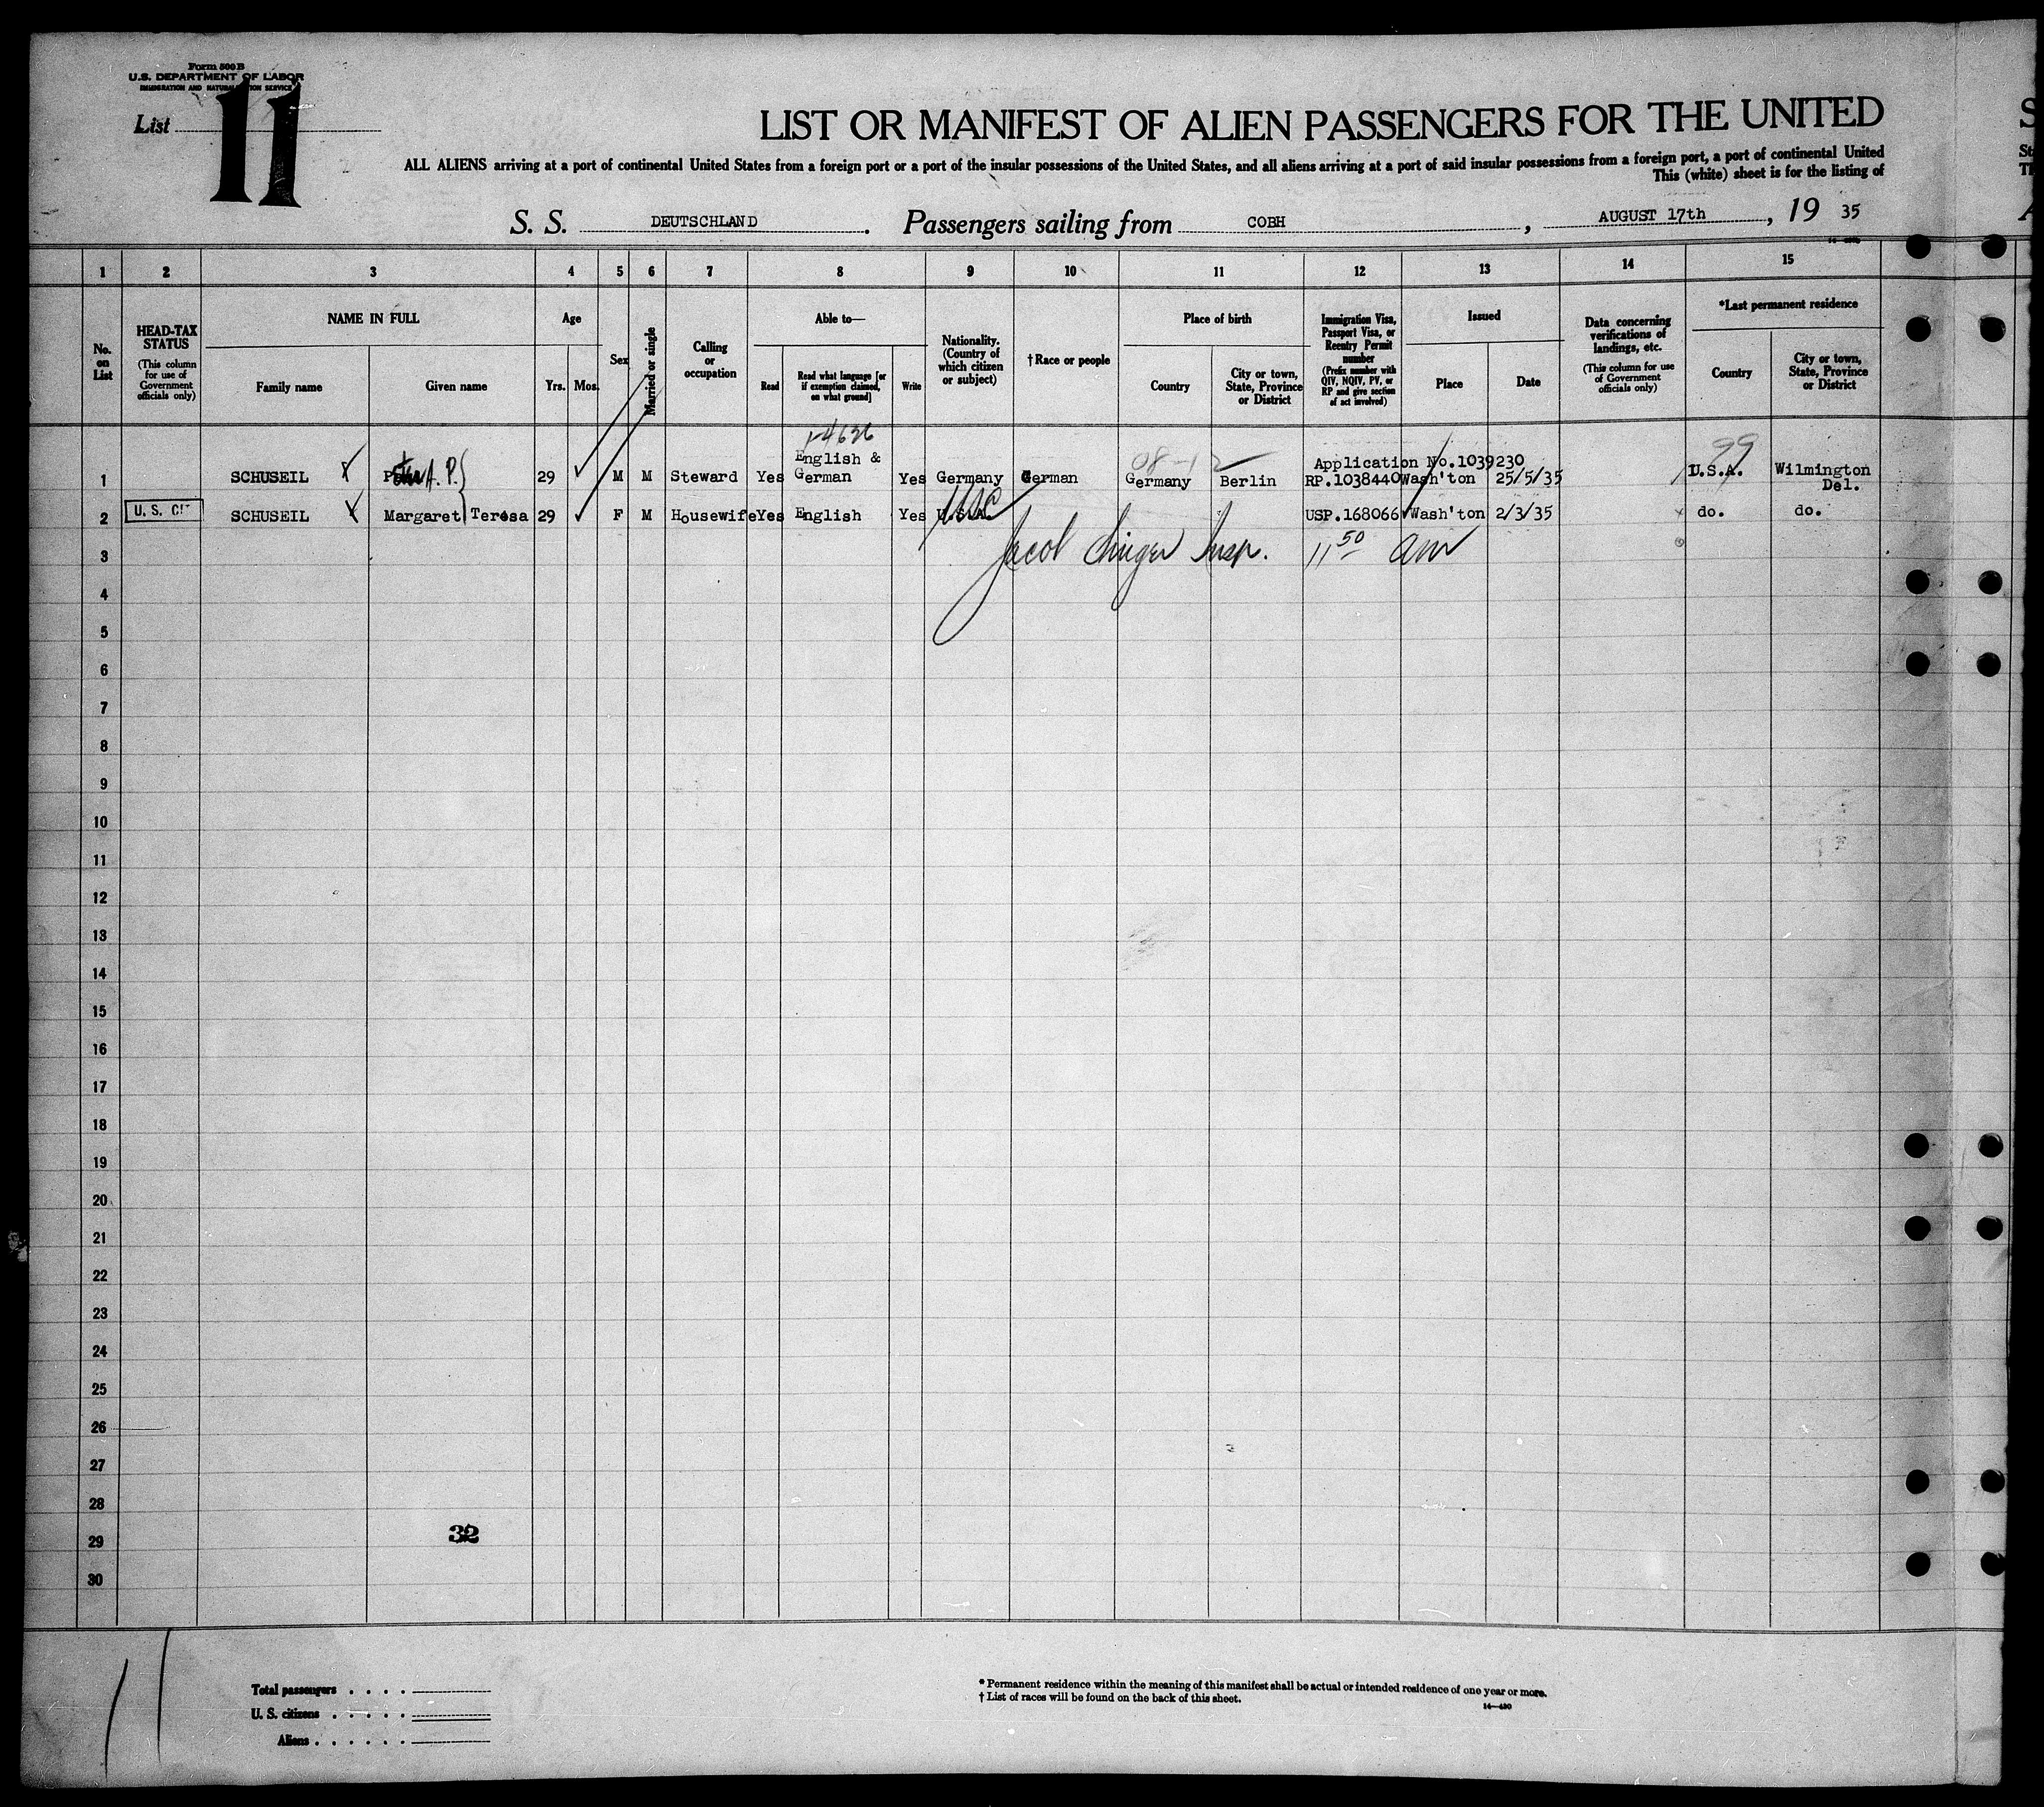 Form 500 B
U.S. DEPARTMENT OF LABOR
IMMIGRATION AND NATURALIZATION SERVICE
List 11
LIST OR MANIFEST OF ALIEN PASSENGERS FOR THE UNITED
ALL ALIENS arriving at a port of continental United States from a foreign port or a port of the insular possessions of the United States, and all aliens arriving at a port of said insular possessions from a foreign port, a port of continental United
This (white) sheet is for the listing of
S. S. DEUTSCHLAND. Passengers sailing from COBH, AUGUST 17th, 19 35
1 2 3 4 5 6 7 8 9 10 11 12 13 14 15
No. on List
HEAD-TAX STATUS
(This column for use of Government officials only)
NAME IN FULL
Family name
Given name
Age
Yrs. Mos.
Sex
Married or single
Calling or occupation
Able to—
Read
Read what language [or if exemption claimed, on what ground]
Write
Nationality. (Country of which citizen or subject)
†Race or people
Place of birth
Country
City or town, State, Province or District
Immigration Visa, Passport Visa, or Reentry Permit number
(Prefix number with QIV, NQIV, PV, or RP and give section of act involved)
Issued
Place
Date
Data concerning verifications of landings, etc.
(This column for use of Government officials only)
*Last permanent residence
Country
City or town, State, Province or District
1-4626
08-12
99
1 SCHUSEIL A. P. 29 M M Steward Yes English & German Yes Germany German Germany Berlin Application No.1039230 RP.1038440 Wash'ton 25/5/35 U.S.A. Wilmington Del.
2 U. S. CIT SCHUSEIL Margaret Teresa 29 F M Housewife Yes English Yes U.S.A. USP.168066 Wash'ton 2/3/35 do. do.
USC
3 Jacob Insp. 11 50 am
4
5
6
7
8
9
10
11
12
13
14
15
16
17
18
19
20
21
22
23
24
25
26
27
28
29
30
32
11
Total passengers . . . .
U. S. citizens . . . . .
Aliens . . . . . .
* Permanent residence within the meaning of this manifest shall be actual or intended residence of one year or more.
† List of races will be found on the back of this sheet.
14—430